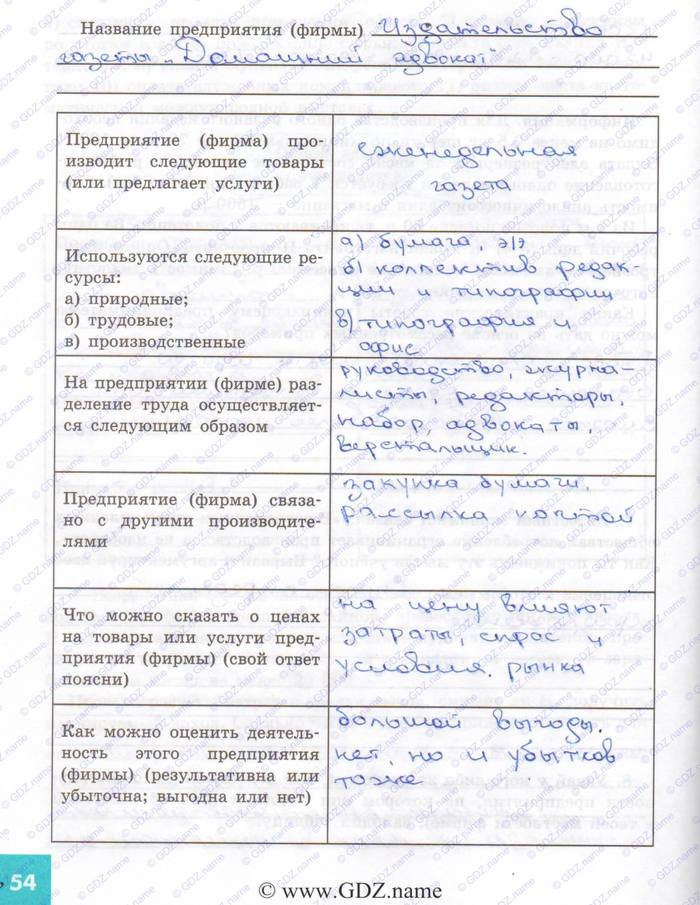 Название предприятия (фирмы) Издательство
газеты „Домашний адвокат"
Предприятие (фирма) про-
изводит следующие товары
(или предлагает услуги)
еженедельная
газета
Используются следующие ре-
сурсы:
а) природные;
б) трудовые;
в) производственные
а) бумага, э/э
б) коллектив редак-
ции и типографии
в) типография и
офис
На предприятии (фирме) раз-
деление труда осуществляет-
ся следующим образом
руководство, журна-
листы, редакторы,
набор, адвокаты,
верстальщик.
Предприятие (фирма) связа-
но с другими производите-
лями
закупка бумаги,
рассылка почтой
Что можно сказать о ценах
на товары или услуги пред-
приятия (фирмы) (свой ответ
поясни)
на цену влияют
затраты, спрос и
условия рынка
Как можно оценить деятель-
ность этого предприятия
(фирмы) (результативна или
убыточна; выгодна или нет)
большой выгоды
нет, но и убытков
тоже
54
© www.GDZ.name